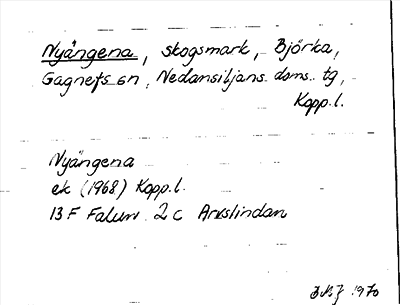 Nyängena, skogsmark, Björka,
Gagnefs sn, Nedansiljans doms. tg,
Kopp. l.
Nyängena
ek (1968) Kopp. l.
13 F Falun 2 c Arvslindan
1970